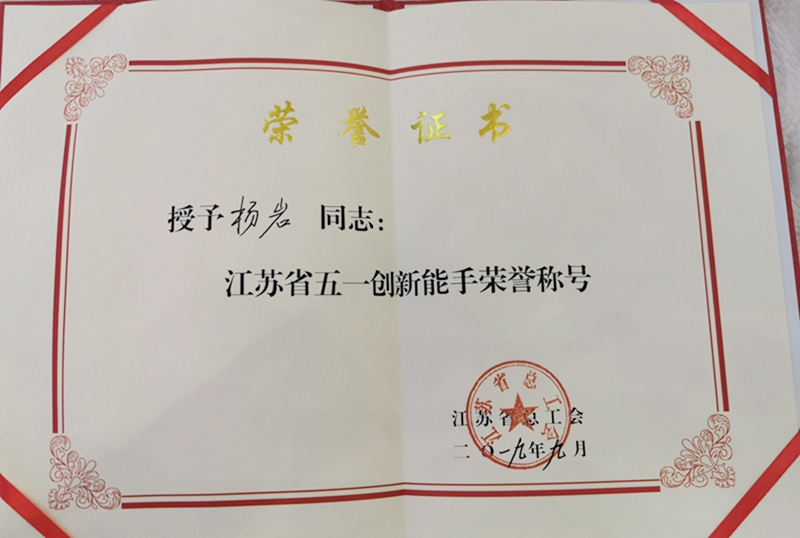 荣誉证书
授予杨岩 同志：
江苏省五一创新能手荣誉称号
江苏省总工会
江苏省总工会
二〇一九年九月